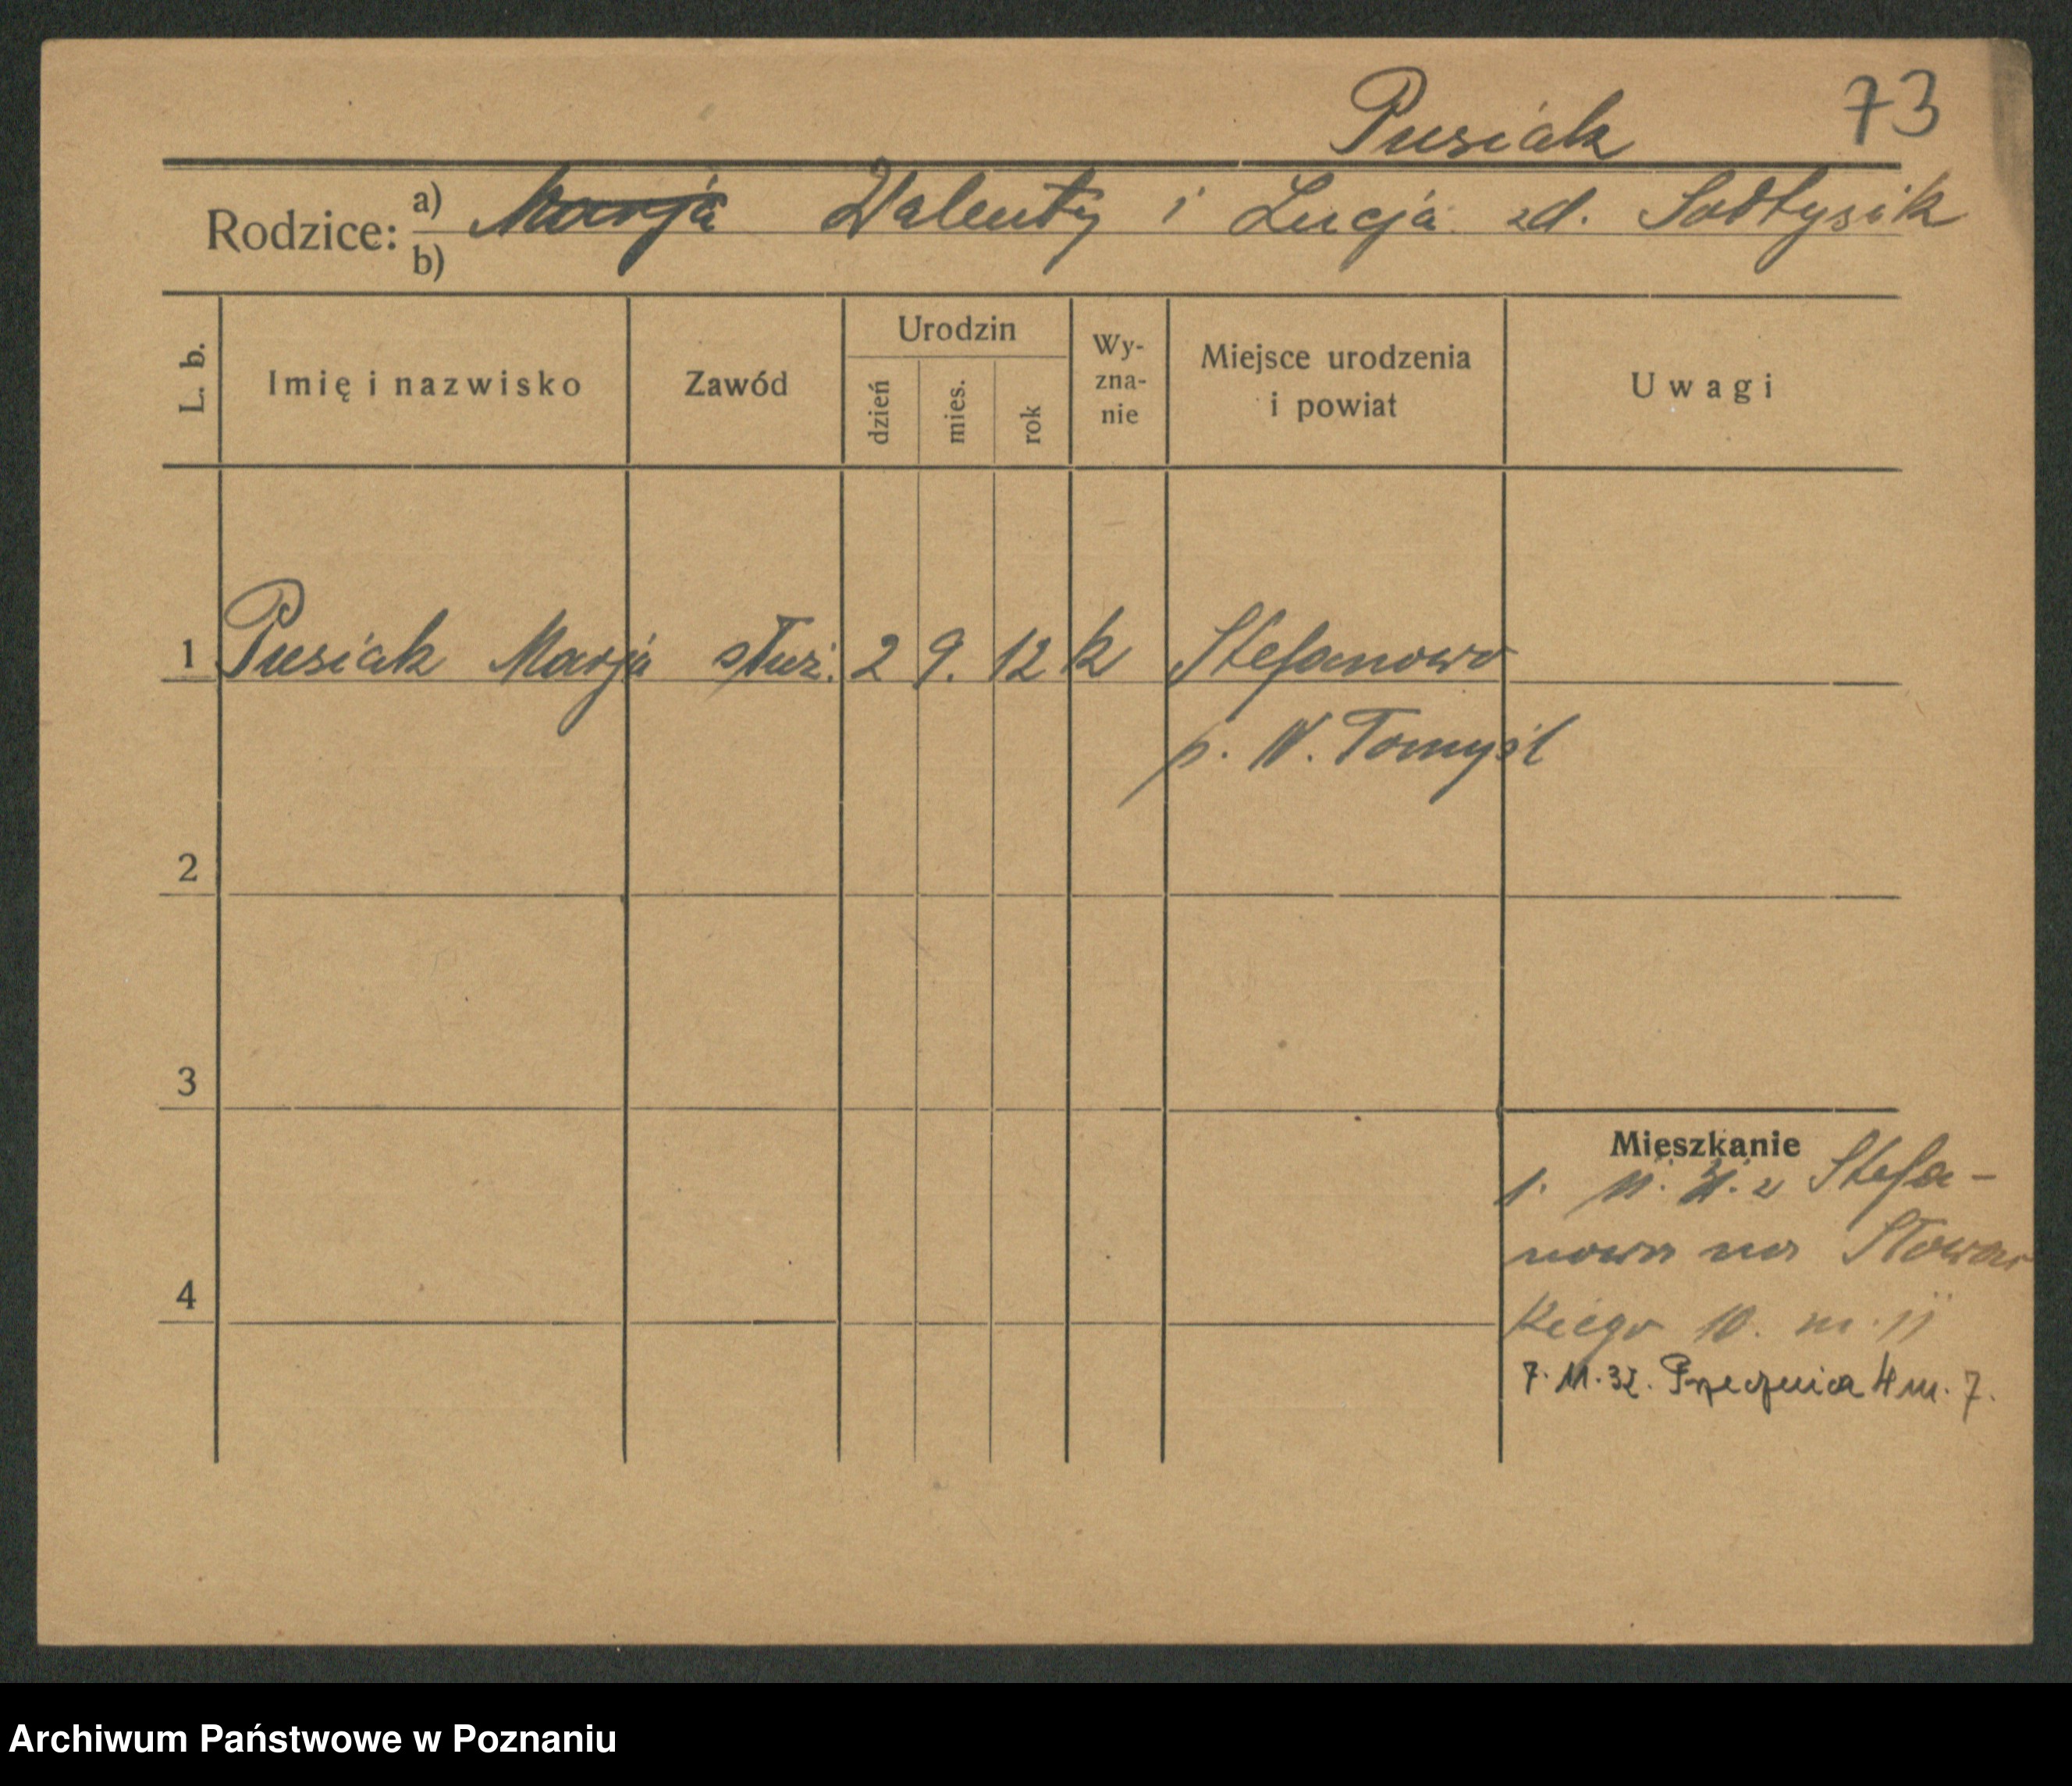 Pusiak 73
Rodzice: a) Marja Walenty i Łucja zd. Sołtysik
b)
L. b. Imię i nazwisko Zawód Urodzin dzień mies. rok Wy-zna-nie Miejsce urodzenia i powiat Uwagi
1 Pusiak Marja służ. 2 9. 12 k Stefanowo
p. N. Tomyśl
2
3
Mieszkanie
1. Stefa-
nowa na Słowac
4
kiego 10. m. 11
7. 11. 32. Przecznica 4 m. 7.
Archiwum Państwowe w Poznaniu